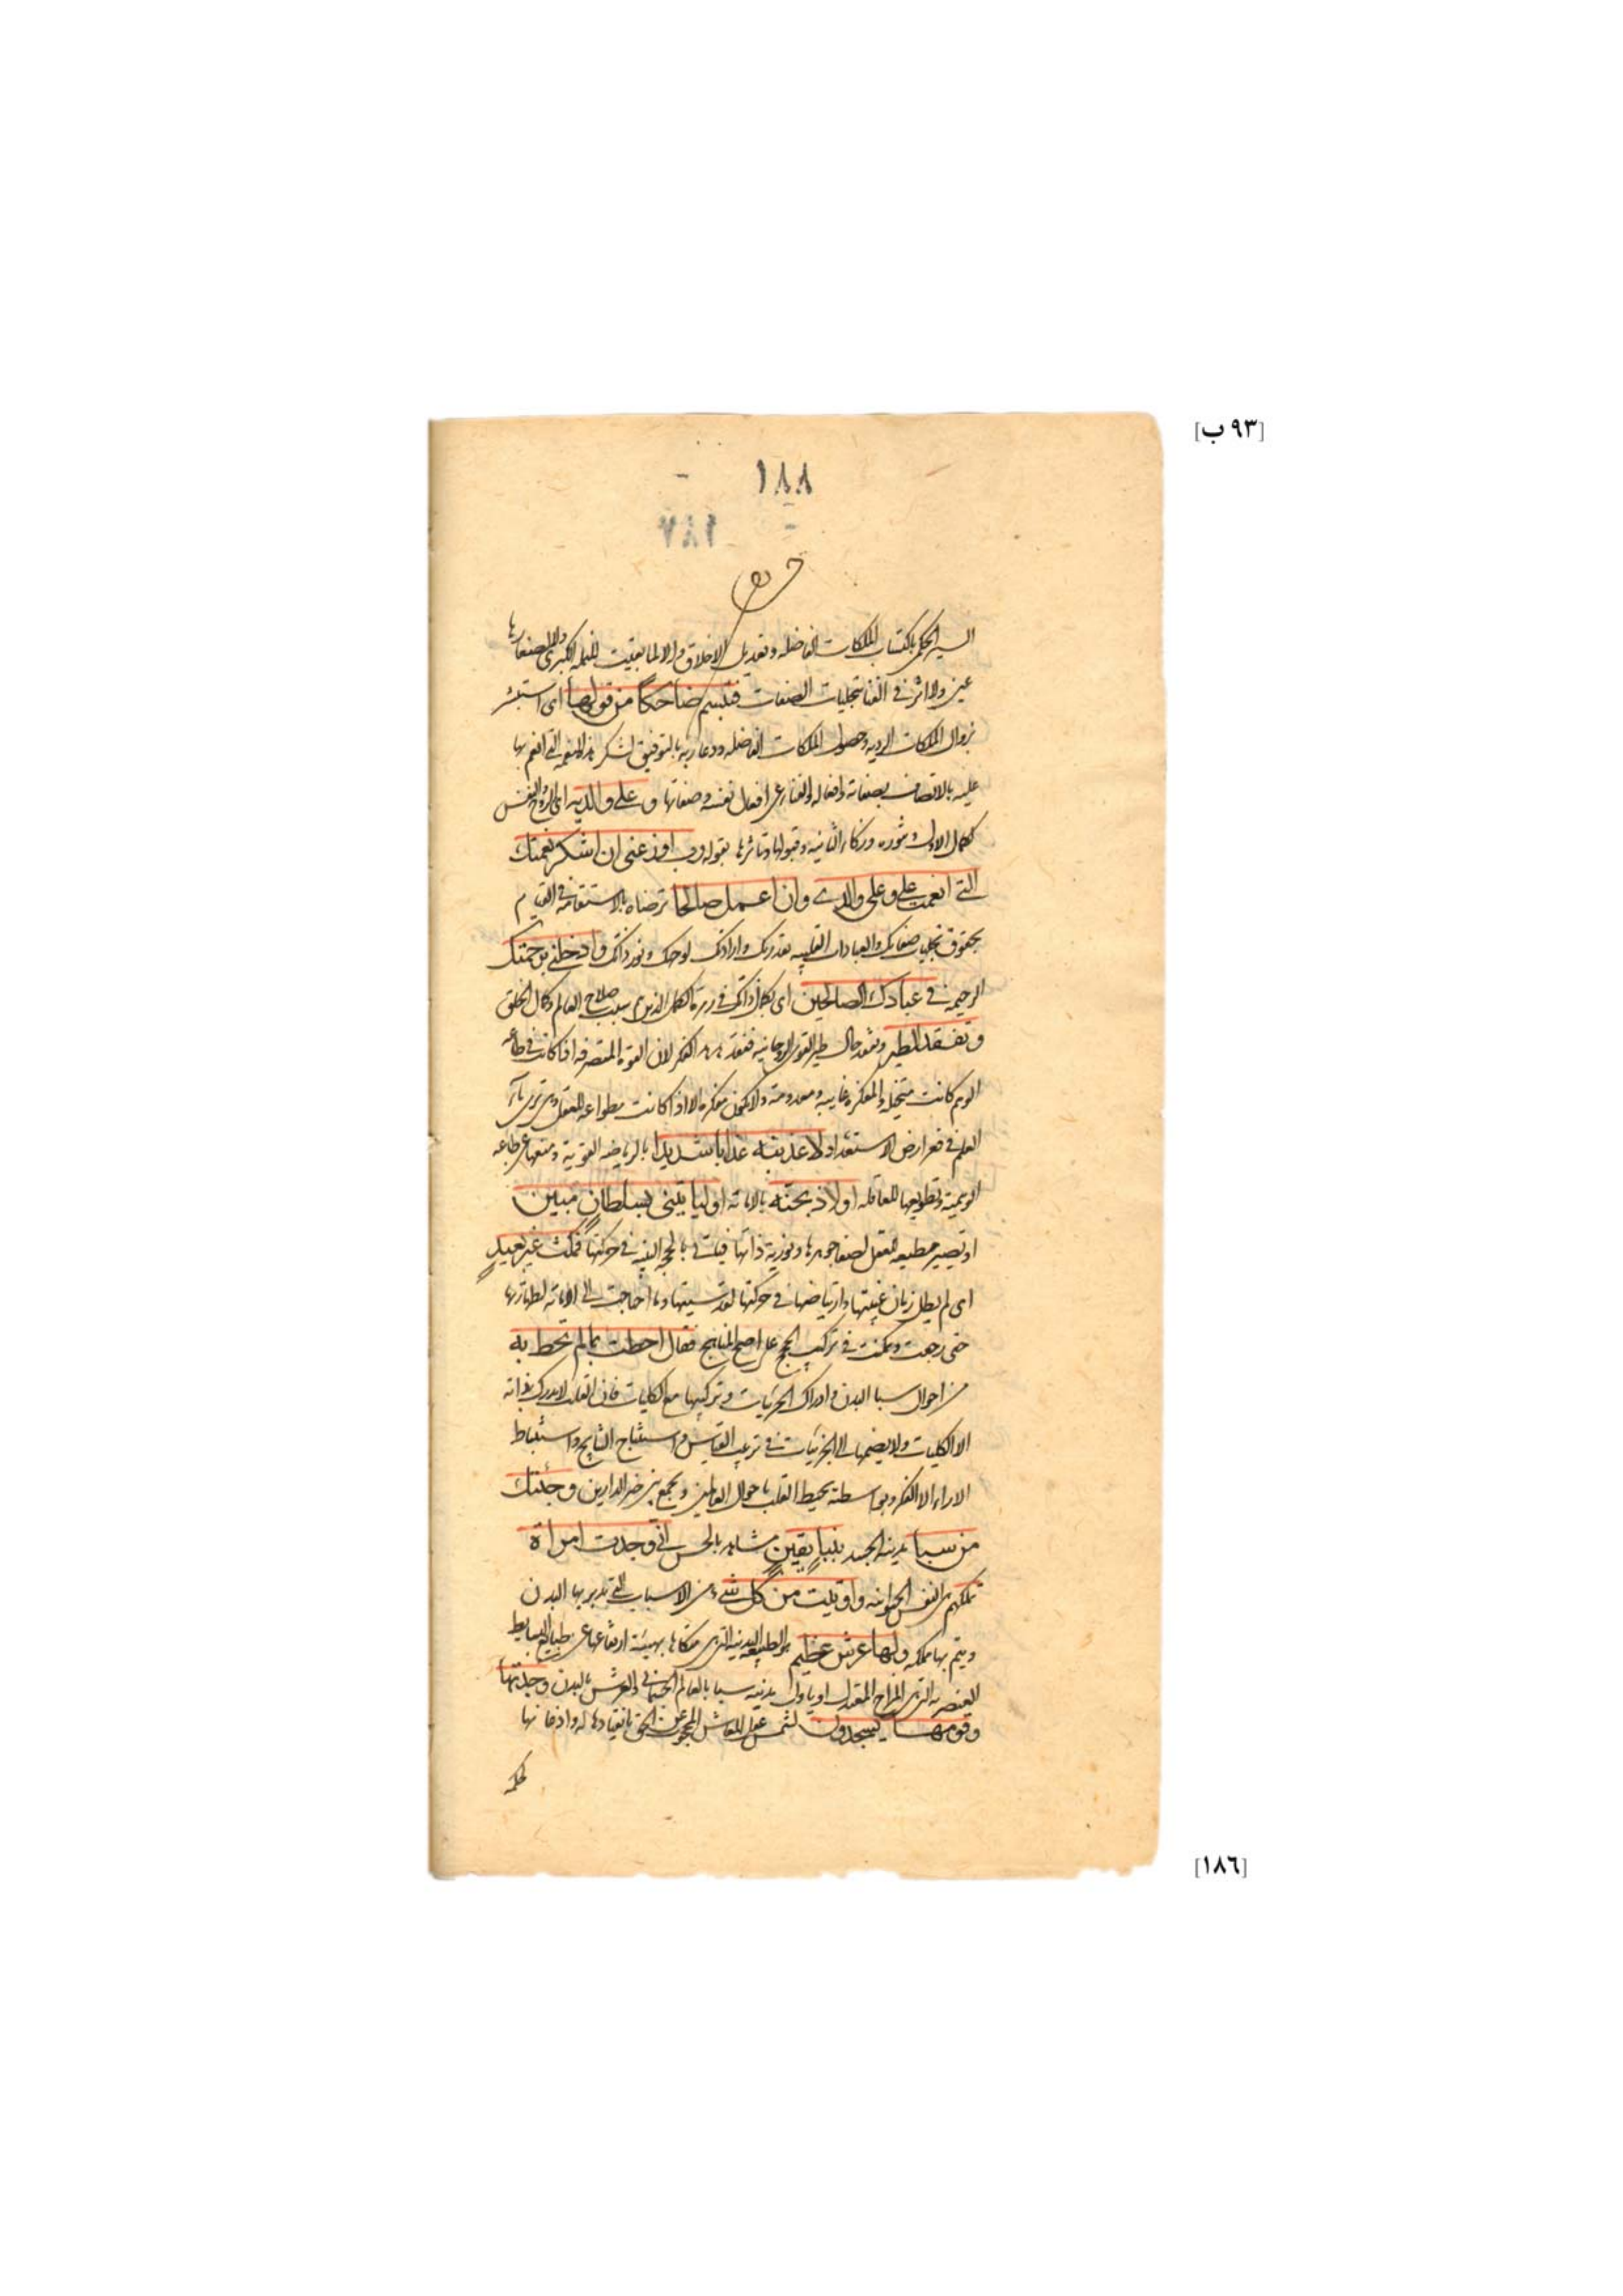 [٩٣ ب]
١٨٨
١٨٧
السير الحكمى باكتساب الملكات الفاضله وتعديل الاخلاق والا لما بقيت للنمله الكبرى ولا لصغارها
عين ولا اثر فى الفنا بتجليات الصفات فتبسم ضاحكا من قولها اى استبشر
بزوال الملكات الرديه وحصول الملكات الفاضله ودعا ربه بالتوفيق لشكر هذه النعمه التى انعم بها
عليه بالاتصاف بصفاته وافعاله والفنا عن افعال نفسه وصفاتها وعلى والديه اى الروح والنفس
كمال الاول ونوره وزكاء الثانيه وقبولها وتاثرها بقوله رب اوزعنى ان اشكر نعمتك
التى انعمت على وعلى والدى وان اعمل صالحا ترضاه بالاستقامه فى القيام
بحقوق تجليات صفاتك والعبادات القلبيه بقدرتك وارادتك لوجهك ونور ذاتك وادخلنى برحمتك
الرحيميه فى عبادك الصالحين اى بكمال ذاتك فى زمرة الكمل الذين هم سبب صلاح العالم وكمال الخلق
وتفقد الطير وتفقد حال طير القوى الروحانيه ففقد هدهد الفكر لان القوة المتصرفه اذا كانت فى طاعه
الوهم كانت متخيله والمفكره غايبه ومعدومة ولا تكون مفكره الا اذا كانت مطواعه للعقل
العلم فى قعر ارض الاستعداد لاعذبنه عذابا شديدا بالرياضه القوية ومنعها عن طاعه
الوهمية وتطويعها للعاقله او لاذبحنه بالاماته او لياتينى بسلطان مبين
او تصير مطيعه للعقل لصفا جوهرها ونورية ذاتها فياتى بالحجه البينه فى حركتها فمكث غير بعيد
اى لم يطل زمان غيبتها وارتياضها فى حركتها لقدسيتها وما احتاجت الى الاماته لطهارتها
حتى رجعت وتمكنت فى تركيب الحجج على اصح المناهج فقال احطت بما لم تحط به
من احوال سبا البدن وادراك الجزئيات وتركيبها مع الكليات فان القلب لا يدرك بذاته
الا الكليات ولا يضمها الى الجزئيات فى ترتيب القياس واستنتاج النتايج واستنباط
الاراء الا الفكر وبواسطته يحيط القلب باحوال العالمين ويجمع بين خير الدارين وجئتك
من سبا مدينه الجسد بنبا يقين مشاهد بالحس انى وجدت امراة
تملكهم هى النفس الحيوانيه واوتيت من كل شىء من الاسباب التى يدبر بها البدن
ويتم بها مملكه ولها عرش عظيم هو الطبيعه البدنيه التى هى متكاها بهيئة ارتفاعها عن طبايع البسايط
العنصريه التى هى المزاج المعتدل او ياول مدينه سبا بالعالم الجسمانى والعرش بالبدن وجدتها
وقومها يسجدون لشمس عقل المعاش المحجوب عن الحق بانقيادها له واذعانها
لحكمه
[١٨٦]